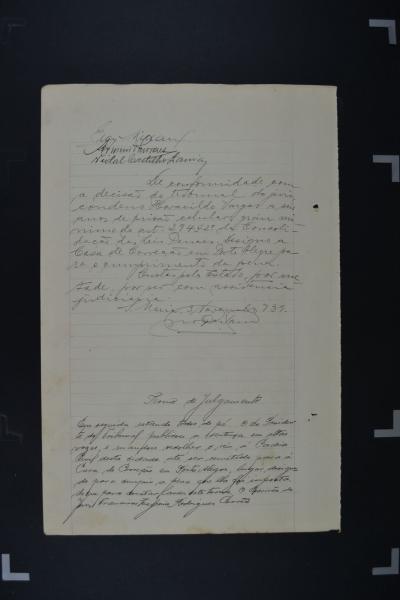 Vidal Castilho
De conformidade com
a decisão do tribunal do juri
condeno Horacildo Vargas a seis
anos de prisão cellular, gráu mi
nimo do art. 294 §2º da Consoli-
dação das Leis Penaes. Designo a
Casa de Correção em Porto Alegre pa
ra o cumprimento da pena.
Custas pelo Estado, por me
tade, por ser com assistencia
judiciaria.
S. Maria, 931.
Termo de Julgamento
Em seguida estando todos de pé, o Dr Presiden
te do tribunal publicou a sentença em altas
vozes, e mandou recolher o réo à Cadeia
Civil desta cidade até ser remettido para a
Casa de Correção em Porto Alegre, lugar design
do para cumprir a pena que lhe foi imposta,
do que para constar lavrei este termo. O Escrivão do
Jury Rodrigues